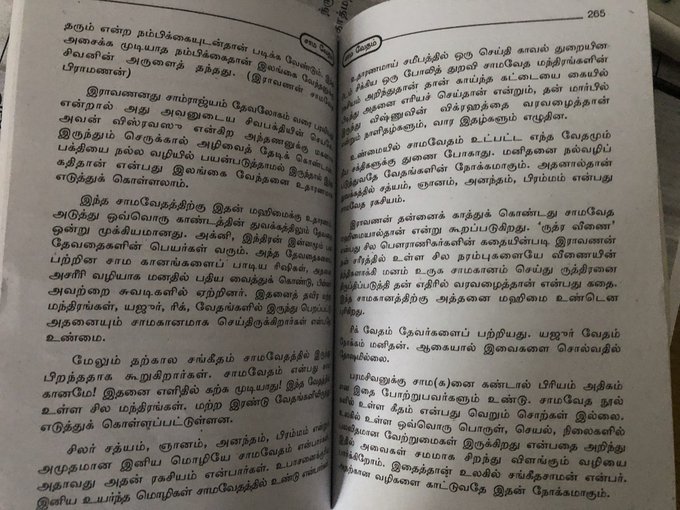 தரும் என்ற நம்பிக்கையுடன்தான் படிக்க வேண்டும்.
அசைக்க முடியாத நம்பிக்கைதான் இலங்கை
சிவனின் அருளைத் தந்தது. (இராவணன்
பிராமணன்)
இராவணனது சாம்ராஜ்யம் தேவலோகம் வரை
என்றால் அது அவனுடைய சிவபக்தியின்
அவன் விஸ்ரவஸு என்கிற அந்தணனுக்கு
இருந்தும் செருக்கால் அழிவைத் தேடிக்
பக்தியை நல்ல வழியில் பயன்படுத்தாமல் இருந்தால்
கதிதான் என்பது இலங்கை வேந்தனை
எடுத்துக் கொள்ளலாம்.
இந்த சாமவேதத்திற்கு இதன் மஹிமைக்கு
அடுத்து ஒவ்வொரு காண்டத்தின் துவக்கத்திலும்
ஒன்று முக்கியமானது. அக்னி, இந்திரன் இன்னும்
தேவதைகளின் பெயர்கள் வரும். அந்த
பற்றின சாம கானங்களைப் பாடிய ரிஷிகள்,
அசரீரி வழியாக மனதில் பதிய வைத்துக் கொண்டு,
அவற்றை சுவடிகளில் ஏற்றினர். இதனைத் தவிர
மந்திரங்கள், யஜுர், ரிக், வேதங்களில் இருந்து
அதனையும் சாமகானமாக செய்திருக்கிறார்கள்
உண்மை.
மேலும் தற்கால சங்கீதம் சாமவேதத்தில்
பிறந்ததாக கூறுகிறார்கள். சாமவேதம் என்பது
கானமே! இதனை எளிதில் கற்க முடியாது! இந்த
உள்ள சில மந்திரங்கள். மற்ற இரண்டு
எடுத்துக் கொள்ளப்பட்டுள்ளன.
சிலர் சத்யம், ஞானம், அனந்தம், பிரம்மம்
அமுதமான இனிய மொழியே சாமவேதம் என்பார்கள்
அதாவது அதன் ரகசியம் என்பார்கள்.
இனிய உயர்ந்த மொழிகள் சாமவேதத்தில் உண்டு
சாம வேதம்
வேதம் 265
உதாரணமாய் சமீபத்தில் ஒரு செய்தி காவல்
சிக்கிய ஒரு போலித் துறவி சாமவேத மந்திரங்களின்
அறிந்துதான் தான் காய்ந்த கட்டையை கையில்
அதனை எரியச் செய்தான் என்றும், தன் மார்பில்
விஷ்ணுவின் விக்ரஹத்தை வரவழைத்தான்
நாளிதழ்களும், வார இதழ்களும் எழுதின.
உண்மையில் சாமவேதம் உட்பட்ட எந்த வேதமும்
சக்திகளுக்கு துணை போகாது. மனிதனை நல்வழிப்
வேதங்களின் நோக்கமாகும். அதனால்தான்
சத்யம், ஞானம், அனந்தம், பிரம்மம் என்பது
ரகசியம்.
இராவணன் தன்னைக் காத்துக் கொண்டது சாமவேத
என்று கூறப்படுகிறது. 'ருத்ர வீணை'
என்பது சில பௌராணிகர்களின் கதையின்படி இராவணன்
சரீரத்தில் உள்ள சில நரம்புகளையே வீணையின்
மனம் உருக சாமகானம் செய்து ருத்திரனை
தன் எதிரில் வரவழைத்தான் என்பது கதை.
இந்த சாமகானத்திற்கு அத்தனை மஹிமை உண்டென
ரிக் வேதம் தேவர்களைப் பற்றியது. யஜுர் வேதம்
நோக்கம் மனிதன். ஆகையால் இவைகளை சொல்வதில்
பரமசிவனுக்கு சாம(க)னை கண்டால் பிரியம் அதிகம்
இதை போற்றுபவர்களும் உண்டு. சாமவேத நூல்
உள்ள கீதம் என்பது வெறும் சொற்கள் இல்லை.
உலகில் உள்ள ஒவ்வொரு பொருள், செயல், நிலைகளில்
வேற்றுமைகள் இருக்கிறது என்பதை அறிந்து
அவைகள் சமமாக சிறந்து விளங்கும் வழியை
இதைத்தான் உலகில் சங்கீதசாமன் என்பர்.
வழிகளை காட்டுவதே இதன் நோக்கமாகும்.